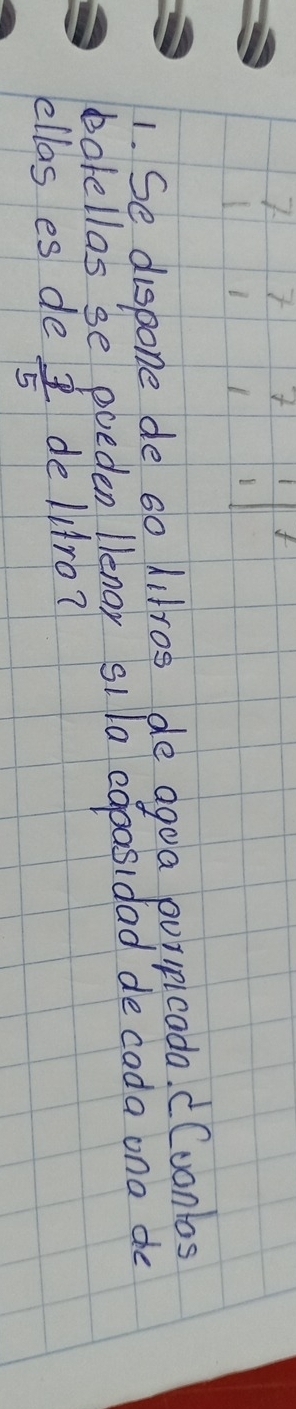 1. Se dispone de 60 litros de agua purificada. ¿Cuantos
botellas se pueden llenar si la capasidad de cada una de
ellas es de /5 de litro?